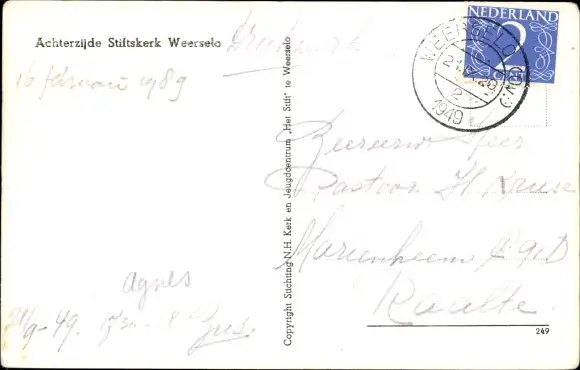 Achterzijde Stiftskerk Weerselo
Drukwerk
16 februari 1989
NEDERLAND
2
CENT
WEERSELO
1949
Copyright Stichting N.H. Kerk en Jeugdcentrum „Het Stift" te Weerselo
Pastoor H. Kruse
Marienheem
Raalte
agnes
249